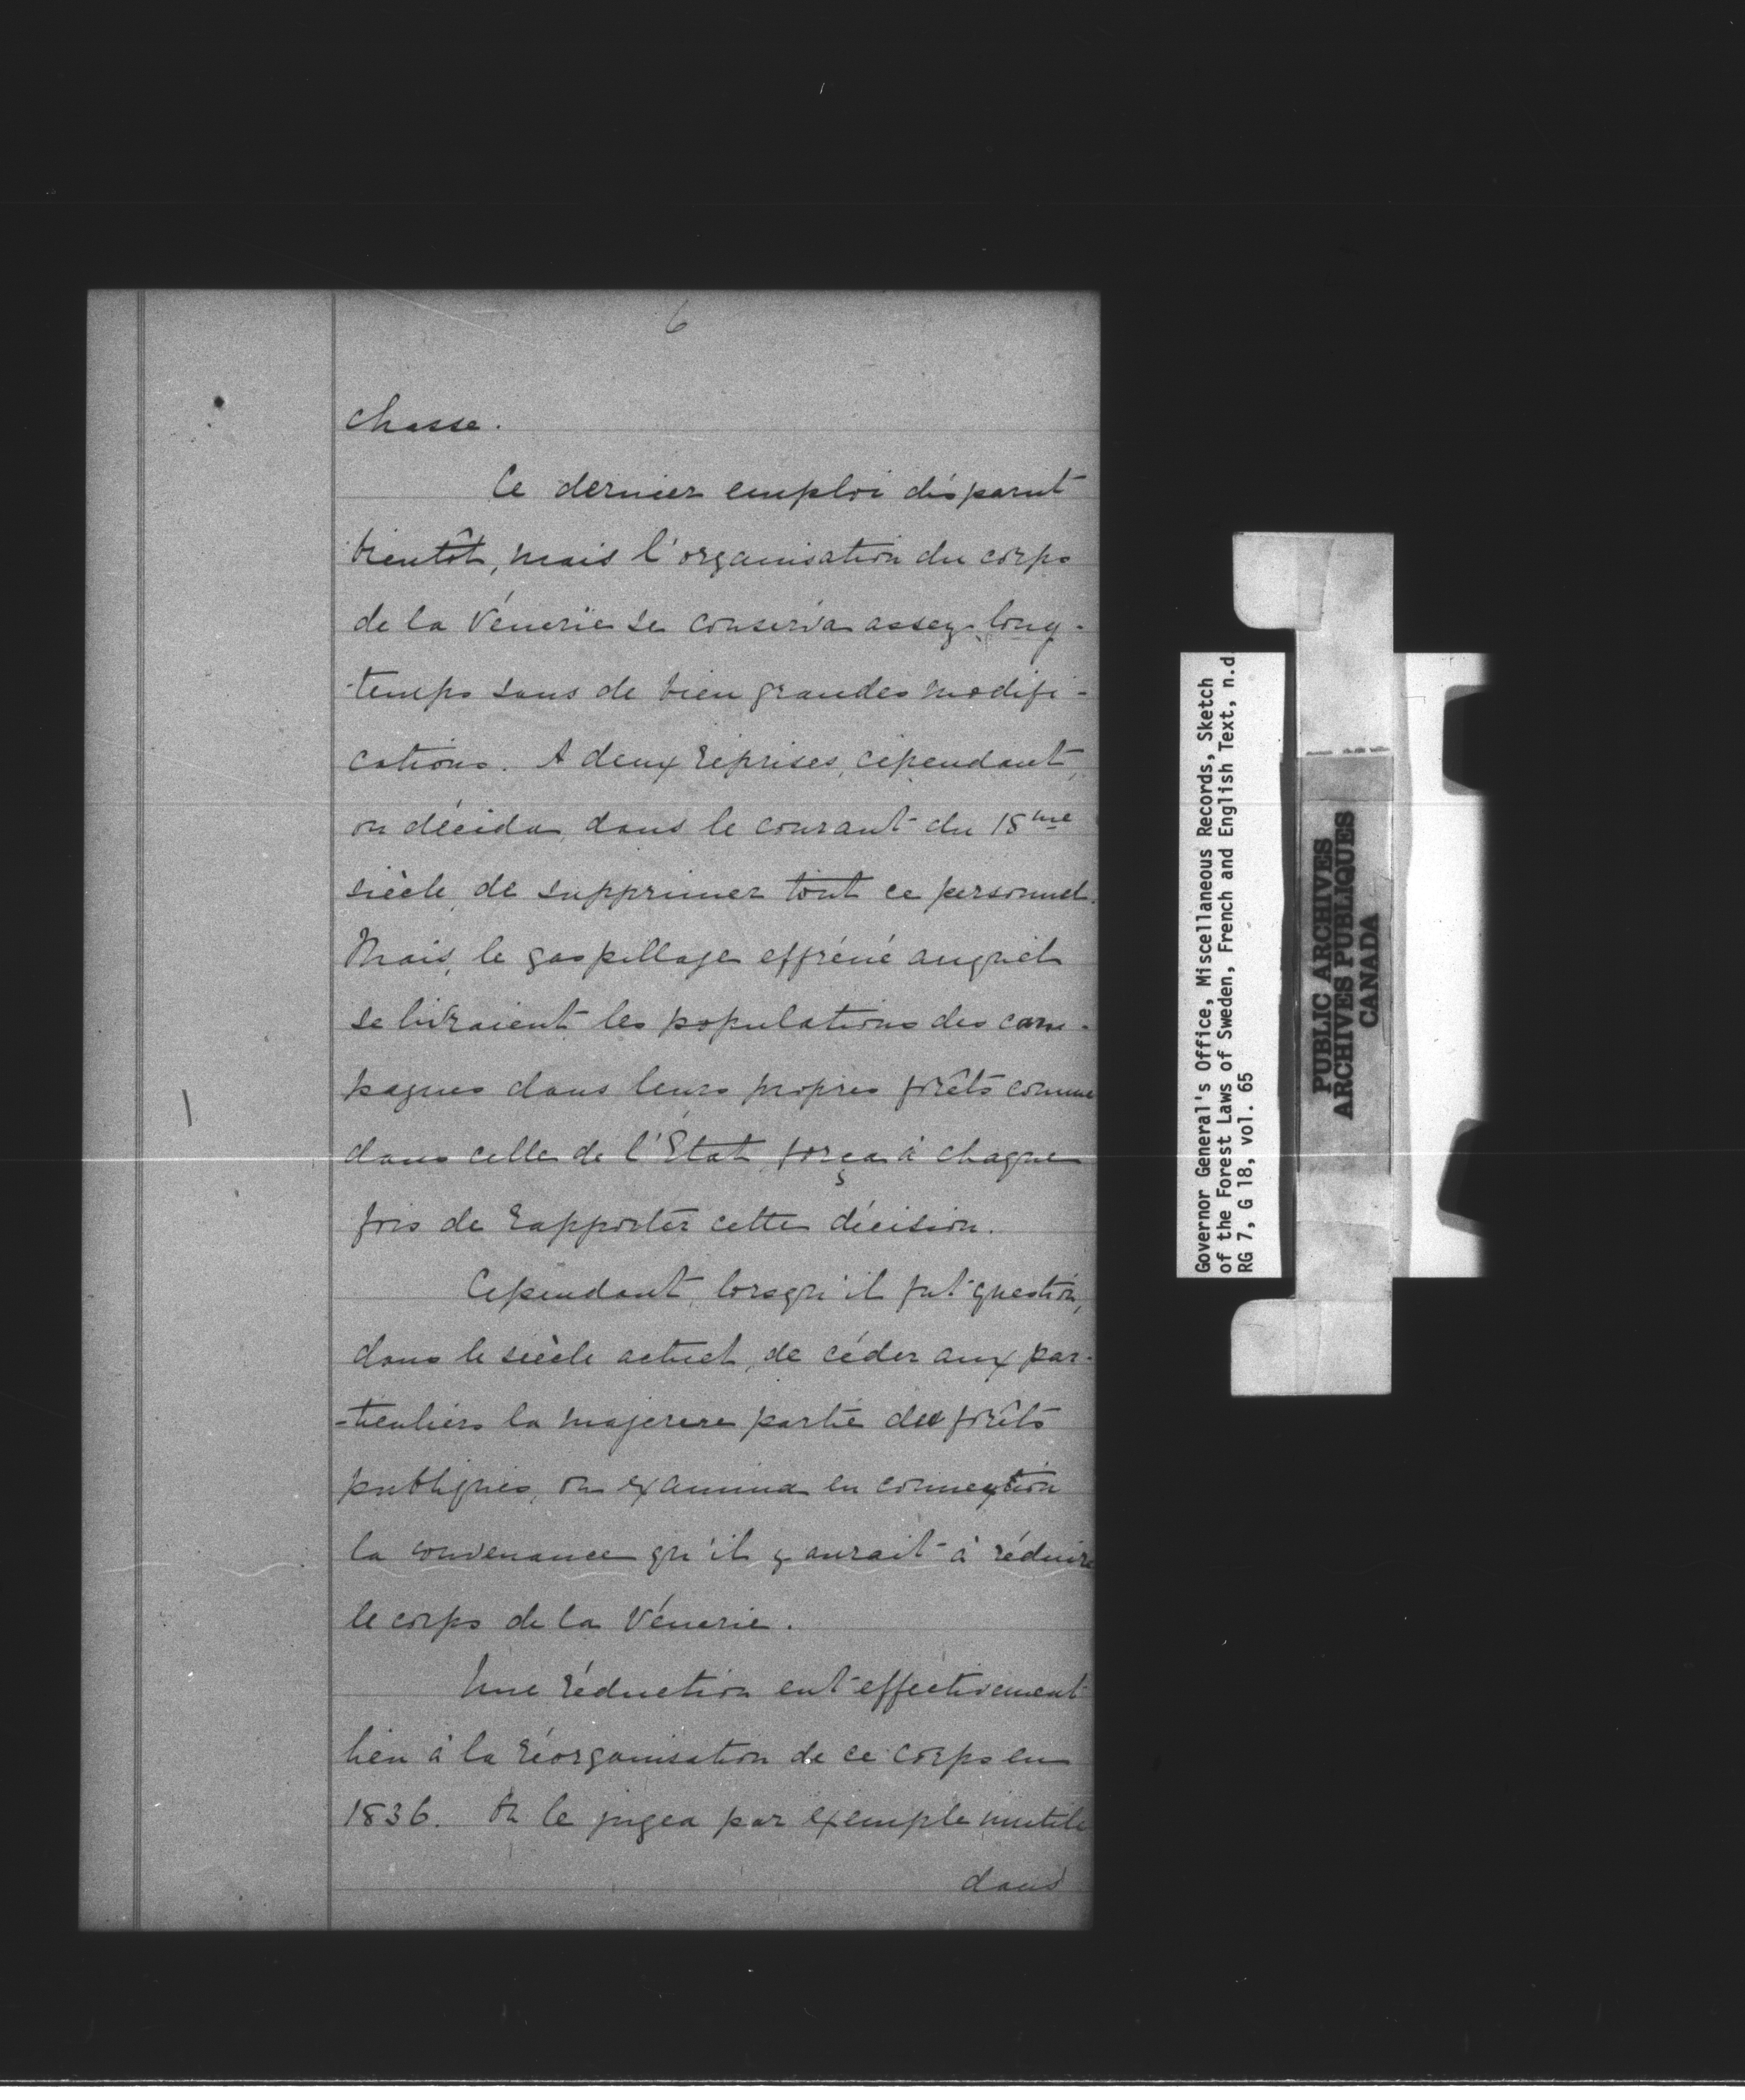 6
chasse.
Ce dernier emploi disparut
bientôt, mais l'organisation du corps
de la Vénerie se conserva assez long-
temps sans de bien grandes modifi-
cations. A deux reprises, cependant,
on décida, dans le courant du 18me
siècle, de supprimer tout ce personnel.
Mais, le gaspillage effréné auquel
se livraient les populations des cam-
pagnes dans leurs propres forêts comme
dans celle de l'Etat, força à chaque
fois de rapporter cette décision.
Cependant, lorsqu'il fut question,
dans le siècle actuel, de céder aux par-
-ticuliers la majeure partie des forêts
publiques, on examina en connextion
la convenance qu'il y aurait à réduire
le corps de la Vénerie.
Une réduction eut effectivement
lieu à la réorganisation de ce corps en
1836. On le jugea par exemple inutile
dans
Governor General's Office, Miscellaneous Records, Sketch
of the Forest Laws of Sweden, French and English Text, n.d
RG 7, G 18, vol. 65
PUBLIC ARCHIVES
ARCHIVES PUBLIQUES
CANADA